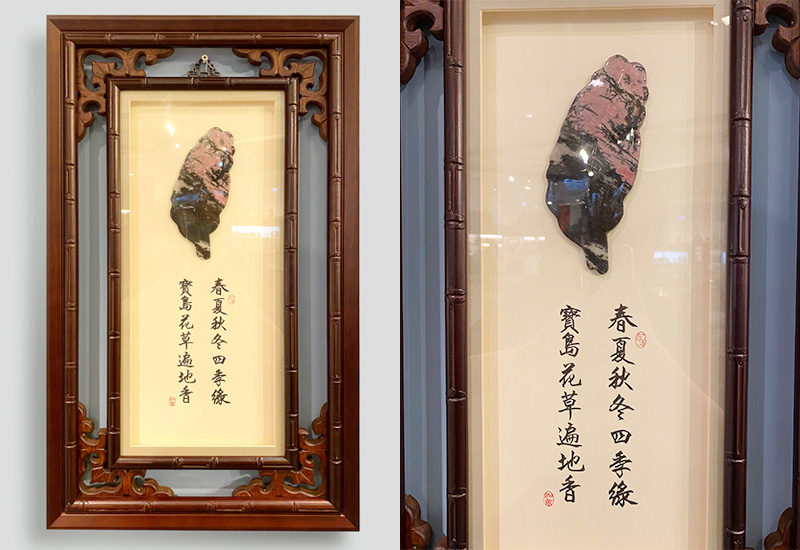 春夏秋冬四季綠
寶島花草遍地香
春夏秋冬四季綠
寶島花草遍地香